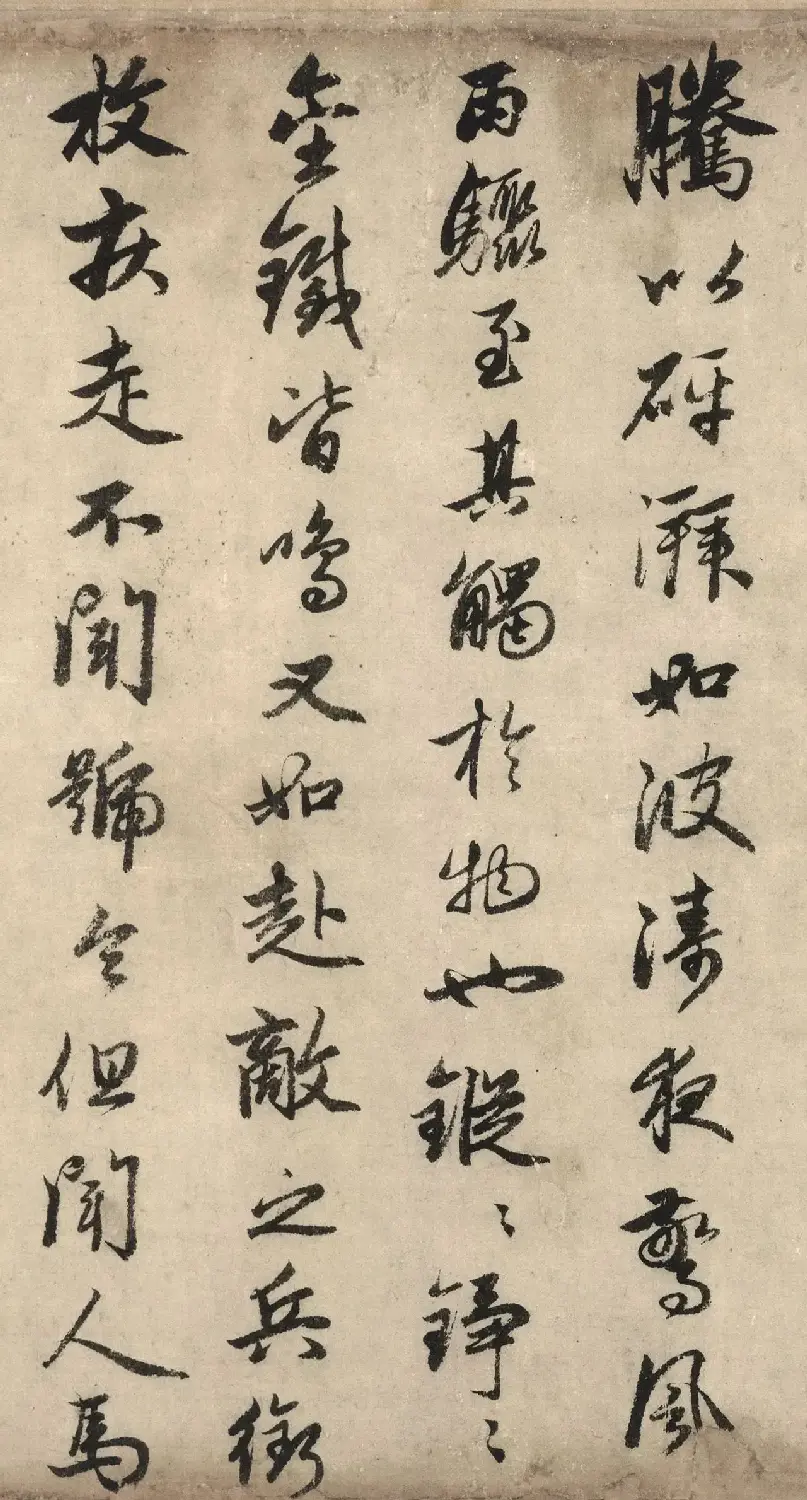 騰以砰湃如波濤夜驚風
雨驟至其觸於物也鏦〻錚〻
金鐵皆鳴又如赴敵之兵銜
枚疾走不聞號令但聞人馬